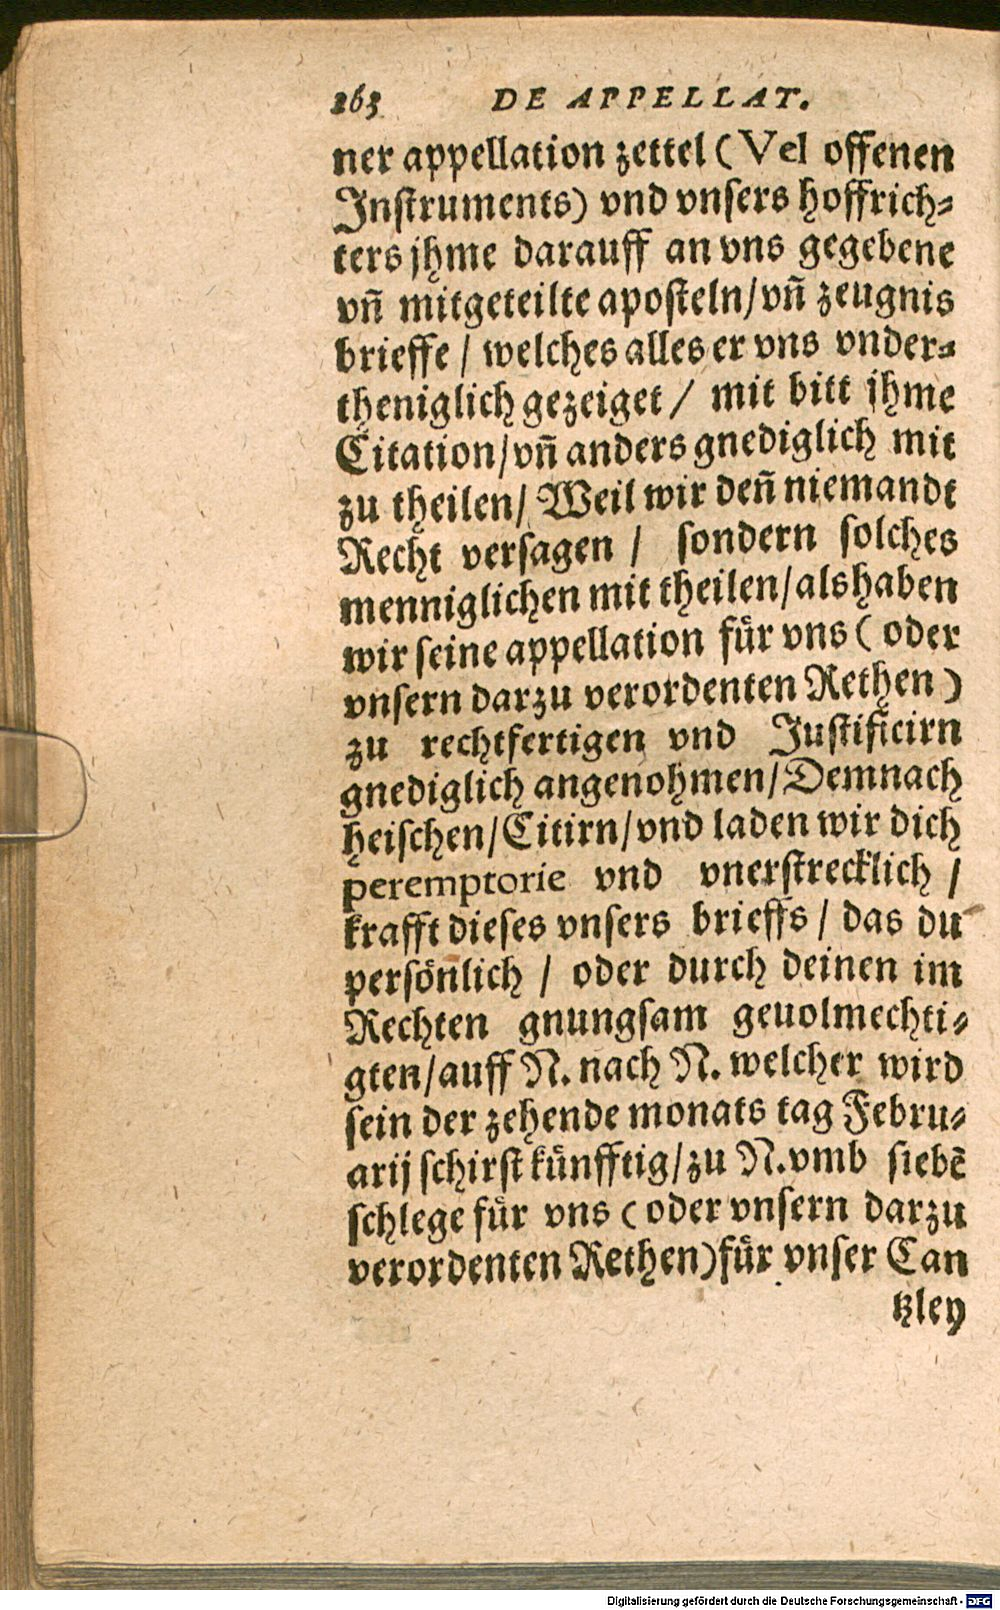 263 DE APPELLAT.
ner appellation zettel (Vel offenen
Instruments) vnd vnsers hoffrich⸗
ters jhme darauff an vns gegebene
vñ mitgeteilte aposteln/vñ zeugnis
brieffe / welches alles er vns vnder⸗
theniglich gezeiget / mit bitt jhme
Citation/vñ anders gnediglich mit
zu theilen/ Weil wir deñ niemandt
Recht versagen / sondern solches
menniglichen mit theilen/als haben
wir seine appellation fuͤr vns ( oder
vnsern darzu verordenten Rethen )
zu rechtfertigen vnd Justificirn
gnediglich angenohmen/Demnach
heischen/Citirn/vnd laden wir dich
peremptorie vnd vnerstrecklich /
krafft dieses vnsers brieffs / das du
persoͤnlich / oder durch deinen im
Rechten gnungsam geuolmechti⸗
gten/auff N. nach N. welcher wird
sein der zehende monats tag Febru⸗
arij schirst kuͤnfftig/zu N. vmb siebẽ
schlege fuͤr vns ( oder vnsern darzu
verordenten Rethen) fuͤr vnser Can
tzley
Digitalisierung gefördert durch die Deutsche Forschungsgemeinschaft - DFG